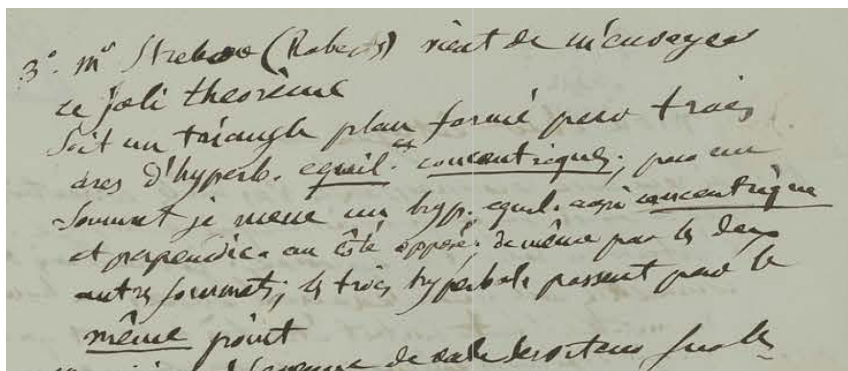 3° Mr Strebor (Roberts) vient de m'envoyer
ce joli theorème
Soit un triangle plan formé par trois
arcs d'hyperb. equil. et concentriques; par un
sommet je mène un hyp. equil. aussi concentrique
et perpendic. au côté opposé; de même par les deux
autres sommets; les trois hyperboles passent par le
même point
de